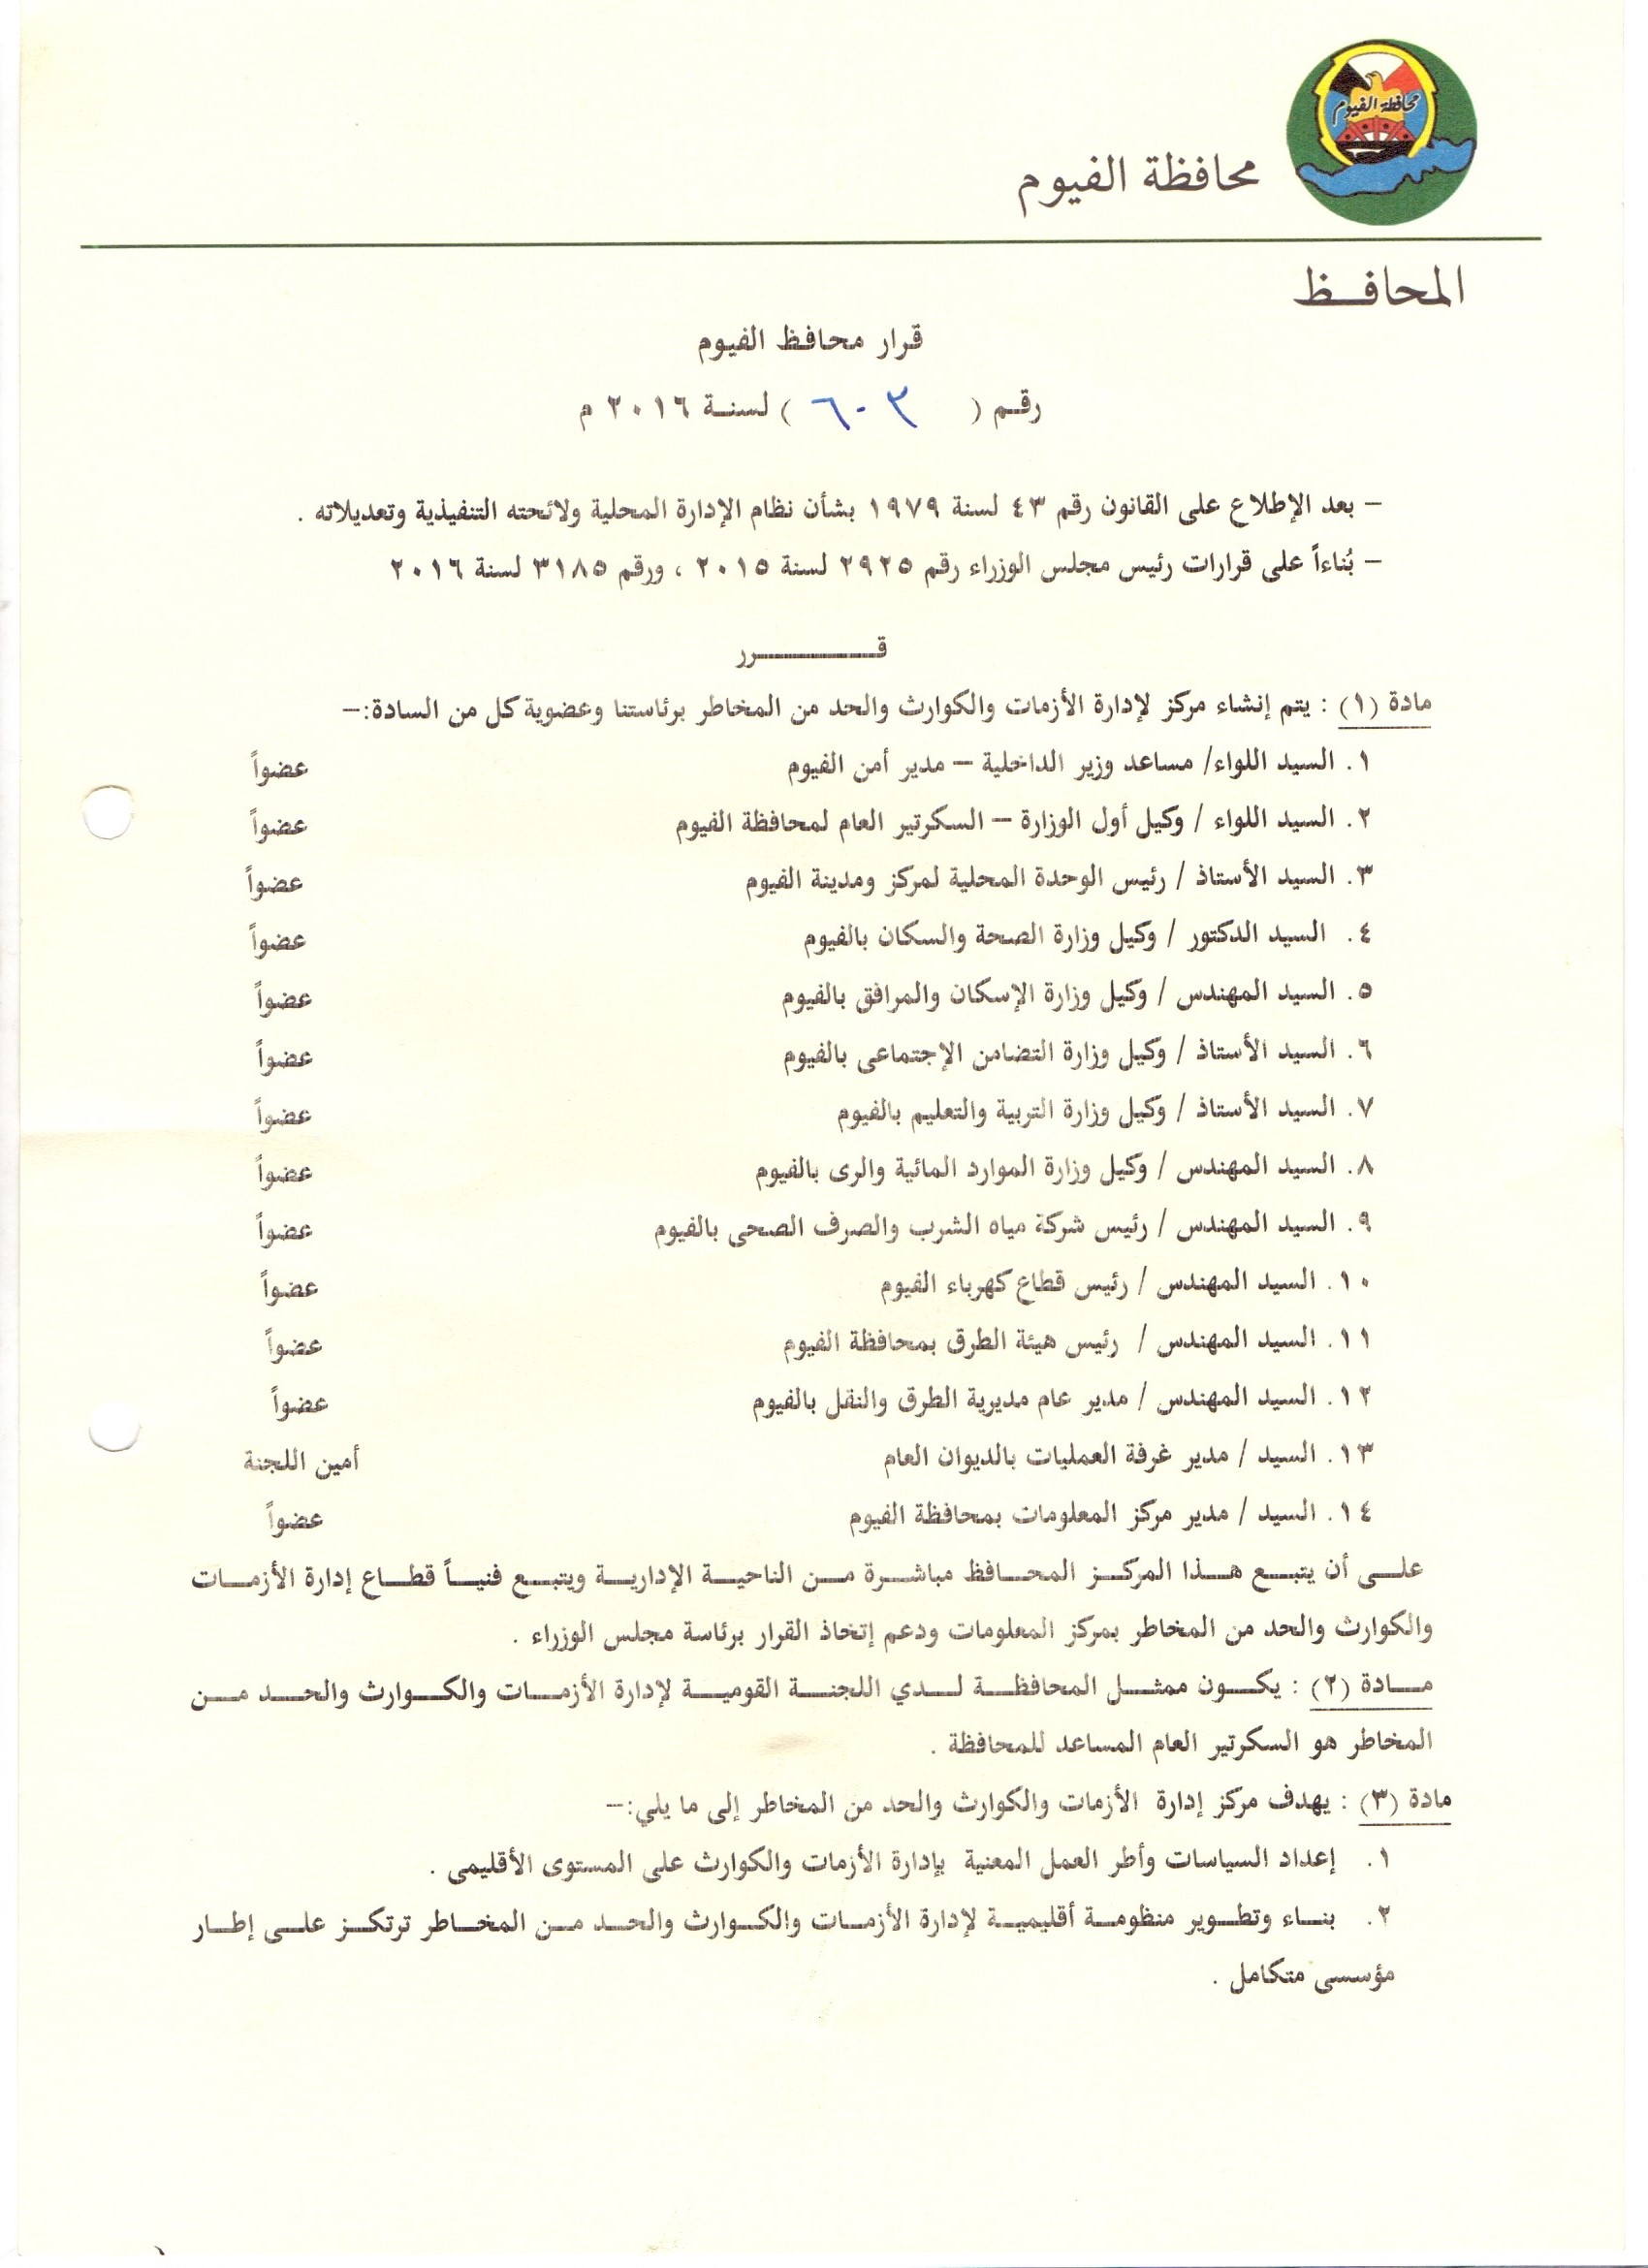 محافظة الفيوم
محافظة الفيوم
المحافـــظ
قرار محافظ الفيوم
رقم ( ٦٠٣ ) لسنة ٢٠١٦ م
– بعد الإطلاع على القانون رقم ٤٣ لسنة ١٩٧٩ بشأن نظام الإدارة المحلية ولائحته التنفيذية وتعديلاته .
– بُناءاً على قرارات رئيس مجلس الوزراء رقم ٢٩٢٥ لسنة ٢٠١٥ ، ورقم ٣١٨٥ لسنة ٢٠١٦
قـــــــــرر
مادة (١) : يتم إنشاء مركز لإدارة الأزمات والكوارث والحد من المخاطر برئاستنا وعضوية كل من السادة:–
١. السيد اللواء/ مساعد وزير الداخلية – مدير أمن الفيوم عضواً
٢. السيد اللواء / وكيل أول الوزارة – السكرتير العام لمحافظة الفيوم عضواً
٣. السيد الأستاذ / رئيس الوحدة المحلية لمركز ومدينة الفيوم عضواً
٤. السيد الدكتور / وكيل وزارة الصحة والسكان بالفيوم عضواً
٥. السيد المهندس / وكيل وزارة الإسكان والمرافق بالفيوم عضواً
٦. السيد الأستاذ / وكيل وزارة التضامن الإجتماعى بالفيوم عضواً
٧. السيد الأستاذ / وكيل وزارة التربية والتعليم بالفيوم عضواً
٨. السيد المهندس / وكيل وزارة الموارد المائية والرى بالفيوم عضواً
٩. السيد المهندس / رئيس شركة مياه الشرب والصرف الصحى بالفيوم عضواً
١٠. السيد المهندس / رئيس قطاع كهرباء الفيوم عضواً
١١. السيد المهندس / رئيس هيئة الطرق بمحافظة الفيوم عضواً
١٢. السيد المهندس / مدير عام مديرية الطرق والنقل بالفيوم عضواً
١٣. السيد / مدير غرفة العمليات بالديوان العام أمين اللجنة
١٤. السيد / مدير مركز المعلومات بمحافظة الفيوم عضواً
على أن يتبع هذا المركز المحافظ مباشرة من الناحية الإدارية ويتبع فنياً قطاع إدارة الأزمات
والكوارث والحد من المخاطر بمركز المعلومات ودعم إتخاذ القرار برئاسة مجلس الوزراء .
مادة (٢) : يكون ممثل المحافظة لدي اللجنة القومية لإدارة الأزمات والكوارث والحد من
المخاطر هو السكرتير العام المساعد للمحافظة .
مادة (٣) : يهدف مركز إدارة الأزمات والكوارث والحد من المخاطر إلى ما يلي:–
١. إعداد السياسات وأطر العمل المعنية بإدارة الأزمات والكوارث على المستوى الأقليمى .
٢. بناء وتطوير منظومة أقليمية لإدارة الأزمات والكوارث والحد من المخاطر ترتكز على إطار
مؤسسى متكامل .